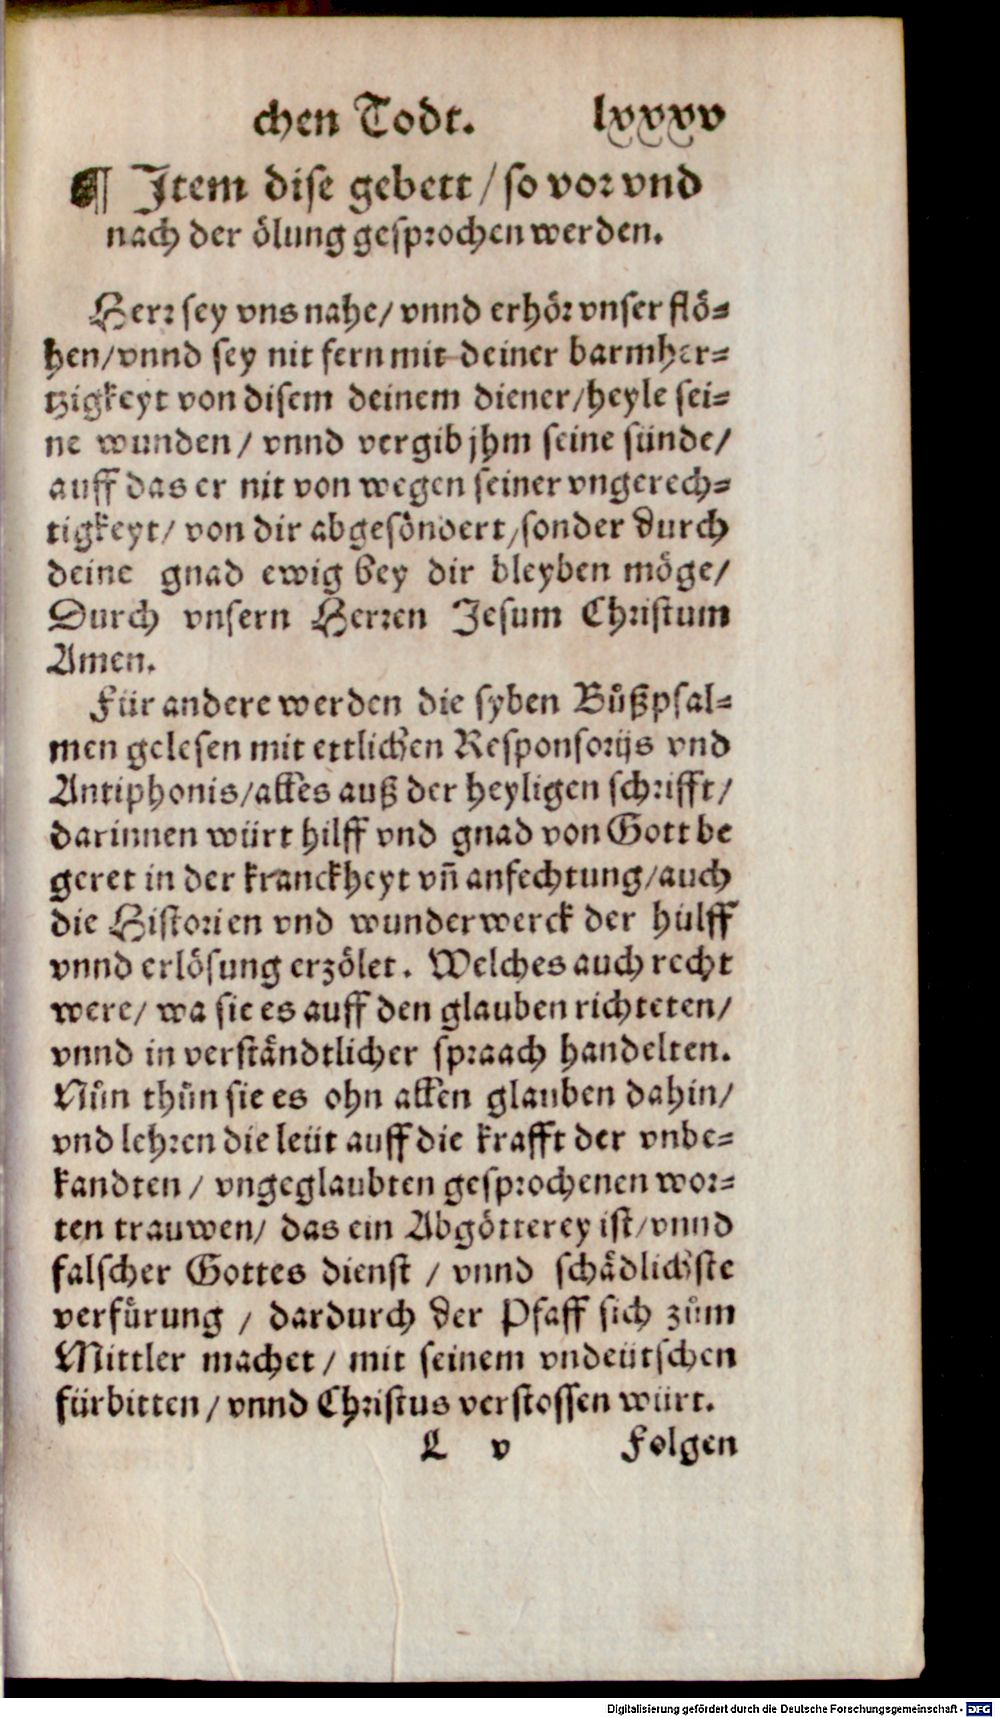 chen Todt. lxxxv
¶ Jtem dise gebett / so vor vnd
nach der ölung gesprochen werden.
Herr sey vns nahe / vnnd erhör vnser flö-
hen / vnnd sey nit fern mit deiner barmher-
tzigkeyt von disem deinem diener / heyle sei-
ne wunden / vnnd vergib jhm seine sünde /
auff das er nit von wegen seiner vngerech-
tigkeyt / von dir abgesöndert / sonder durch
deine gnad ewig bey dir bleyben möge /
Durch vnsern Herren Jesum Christum
Amen.
Für andere werden die syben Bůßpsal-
men gelesen mit ettlichen Responsorijs vnd
Antiphonis / alles auß der heyligen schrifft /
darinnen würt hilff vnd gnad von Gott be
geret in der kranckheyt vñ anfechtung / auch
die Historien vnd wunderwerck der hülff
vnnd erlösung erzölet. Welches auch recht
were / wa sie es auff den glauben richteten /
vnnd in verständtlicher spraach handelten.
Nůn thůn sie es ohn allen glauben dahin /
vnd lehren die leüt auff die krafft der vnbe-
kandten / vngeglaubten gesprochenen wor-
ten trauwen / das ein Abgötterey ist / vnnd
falscher Gottes dienst / vnnd schädlichste
verfürung / dardurch der Pfaff sich zům
Mittler machet / mit seinem vndeütschen
fürbitten / vnnd Christus verstossen würt.
L v Folgen
Digitalisierung gefördert durch die Deutsche Forschungsgemeinschaft - DFG